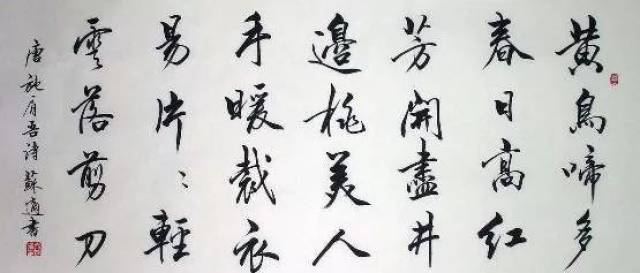 黃鳥啼多
春日高紅
芳開盡井
邊桃美人
手暖裁衣
易片〻輕
雲落剪刀
唐施肩吾詩 蘇適書